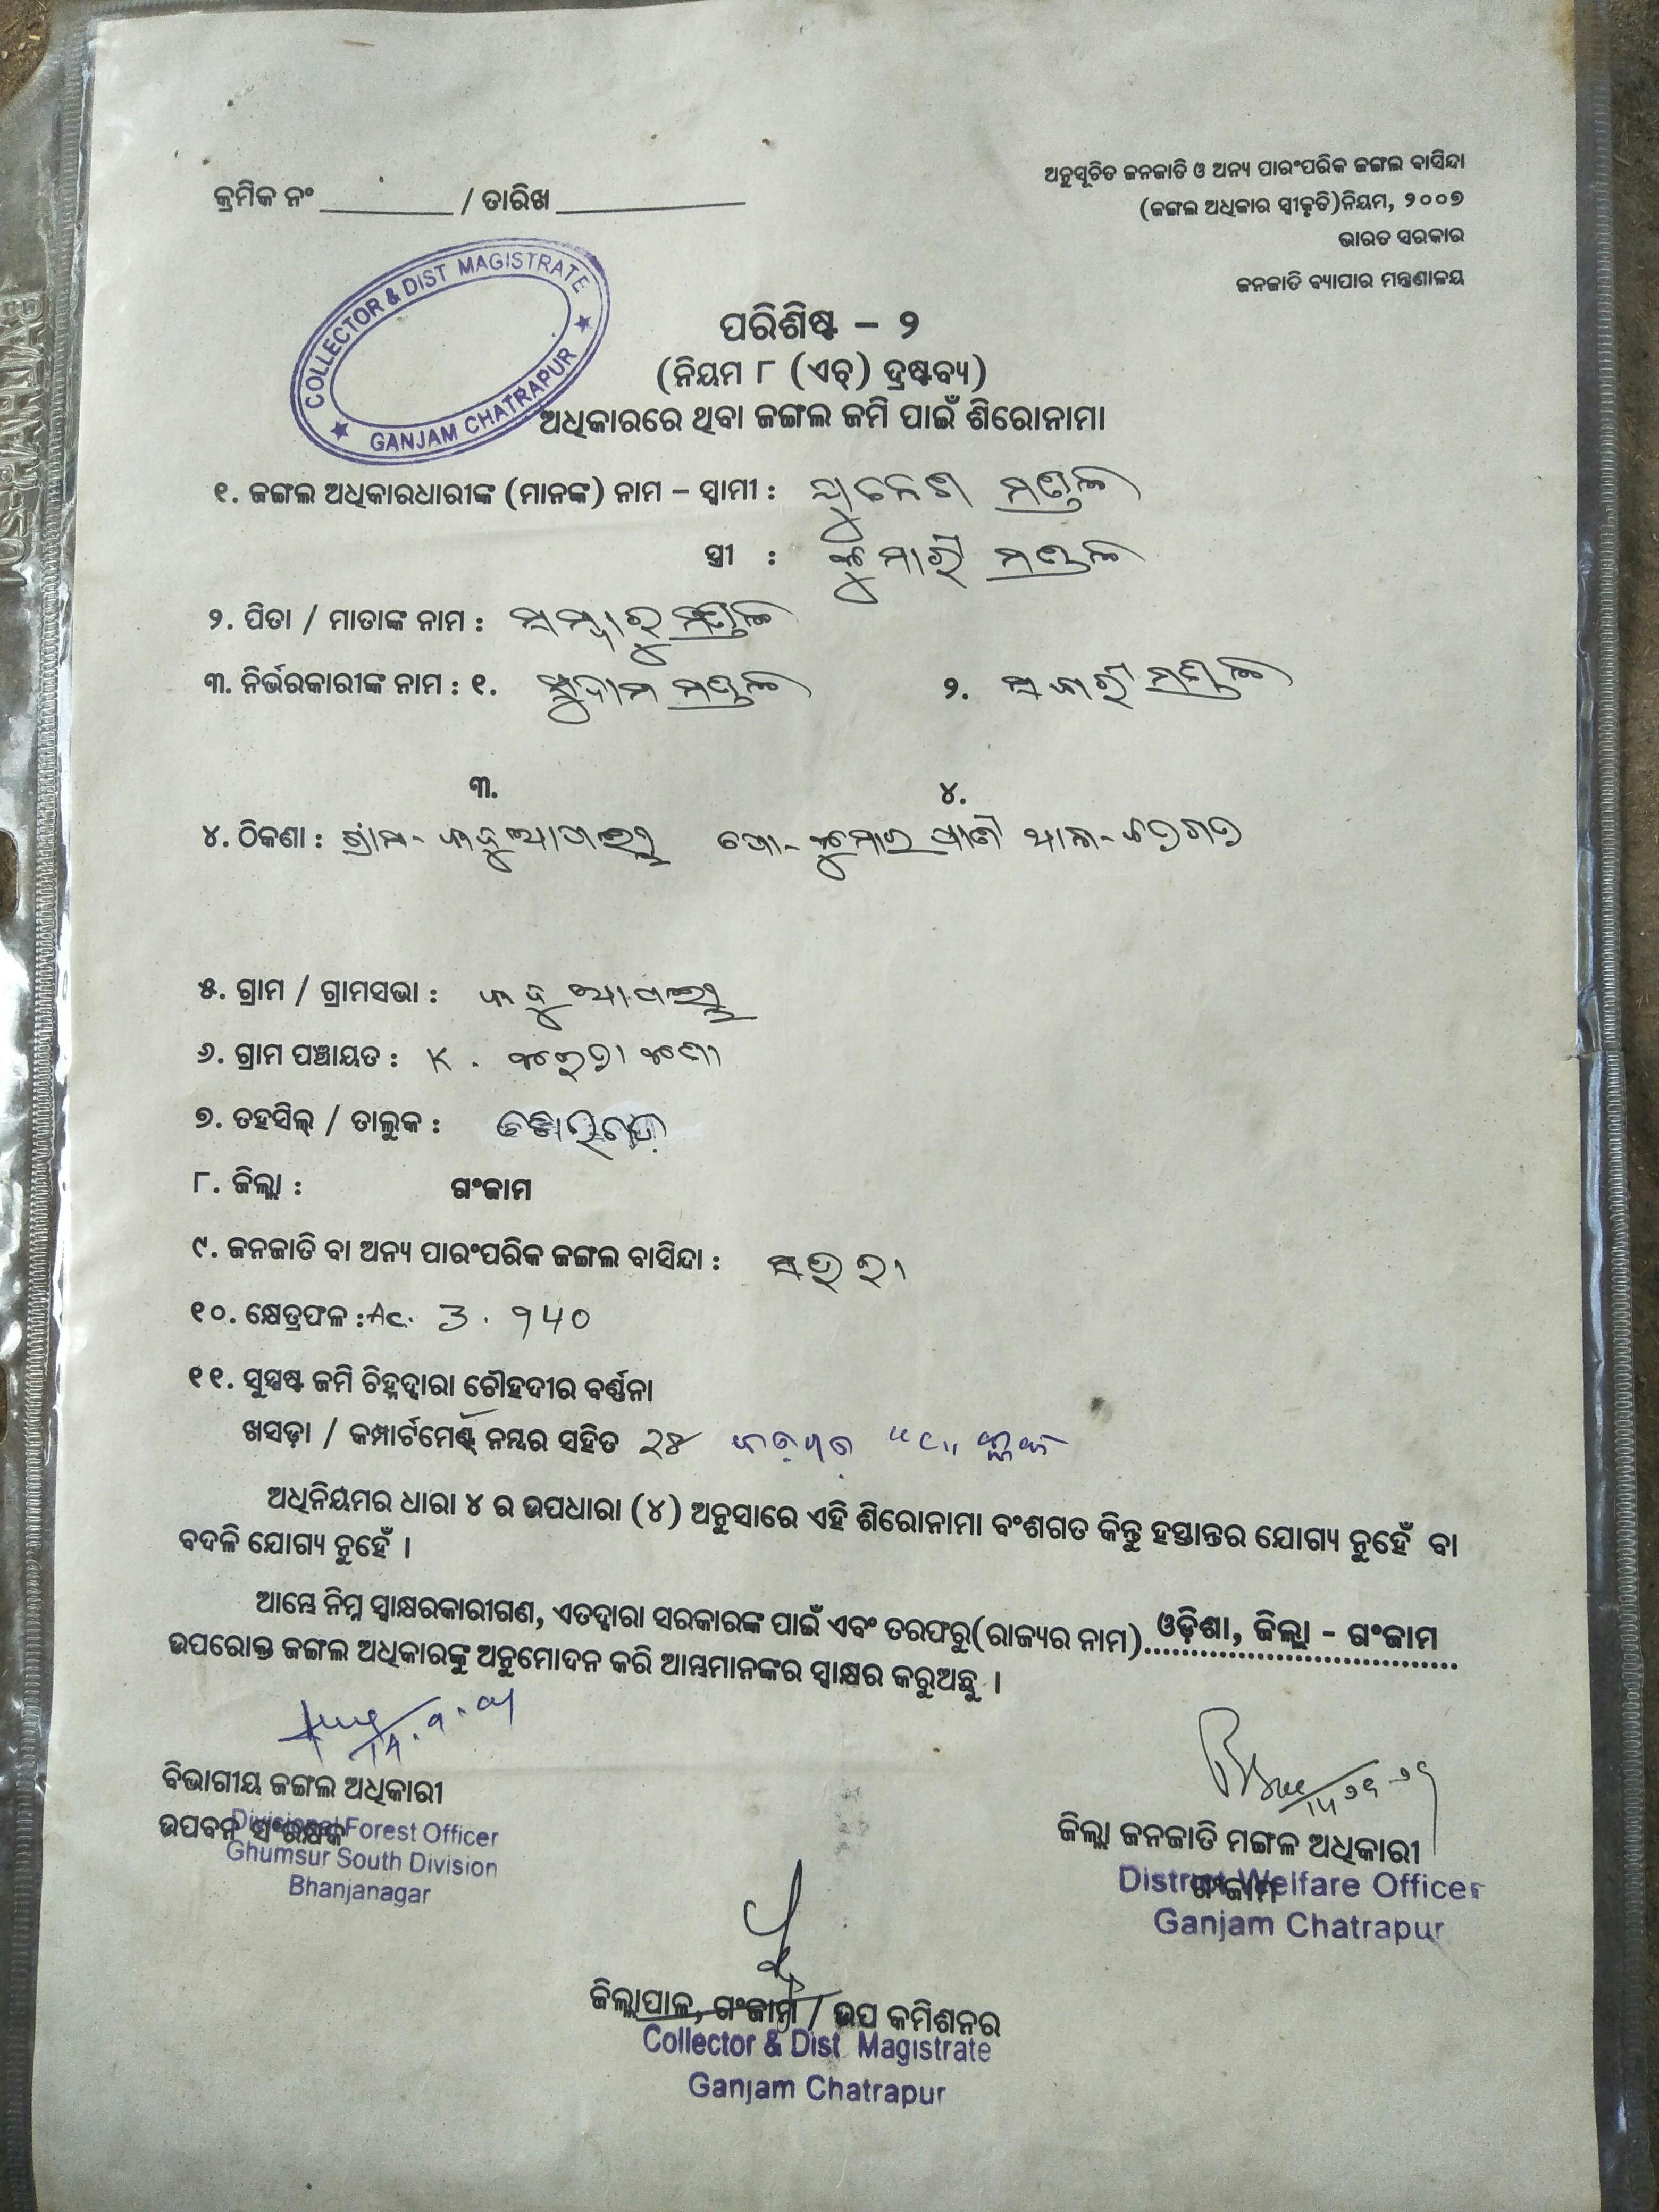 କ୍ରମିକ ନଂ ________ / ତାରିଖ ____________
ଅନୁସୂଚିତ ଜନଜାତି ଓ ଅନ୍ୟ ପାରଂପରିକ ଜଙ୍ଗଲ ବାସିନ୍ଦା
(ଜଙ୍ଗଲ ଅଧିକାର ସ୍ୱୀକୃତି)ନିୟମ, ୨୦୦୭
ଭାରତ ସରକାର
ଜନଜାତି ବ୍ୟାପାର ମନ୍ତ୍ରଣାଳୟ
COLLECTOR & DIST MAGISTRATE
GANJAM CHATRAPUR
ପରିଶିଷ୍ଟ – ୨
(ନିୟମ ୮ (ଏଚ୍) ଦ୍ରଷ୍ଟବ୍ୟ)
ଅଧିକାରରେ ଥିବା ଜଙ୍ଗଲ ଜମି ପାଇଁ ଶିରୋନାମା
୧. ଜଙ୍ଗଲ ଅଧିକାରଧାରୀଙ୍କ (ମାନଙ୍କ) ନାମ – ସ୍ୱାମୀ : ମଣ୍ଡଳ
ସ୍ତ୍ରୀ : କୁମାରୀ ମଣ୍ଡଳ
୨. ପିତା / ମାତାଙ୍କ ନାମ : ମଣ୍ଡଳ
୩. ନିର୍ଭରକାରୀଙ୍କ ନାମ : ୧. ସୁଦାମ ମଣ୍ଡଳ ୨. ମଣ୍ଡଳ
୩. ୪.
୪. ଠିକଣା : ଗ୍ରାମ-
୫. ଗ୍ରାମ / ଗ୍ରାମସଭା :
୬. ଗ୍ରାମ ପଞ୍ଚାୟତ : K.
୭. ତହସିଲ୍ / ତାଲୁକ :
୮. ଜିଲ୍ଲା : ଗଂଜାମ
୯. ଜନଜାତି ବା ଅନ୍ୟ ପାରଂପରିକ ଜଙ୍ଗଲ ବାସିନ୍ଦା :
୧୦. କ୍ଷେତ୍ରଫଳ : Ac. 3.
୧୧. ସୁସ୍ପଷ୍ଟ ଜମି ଚିହ୍ନଦ୍ୱାରା ଚୌହଦୀର ବର୍ଣ୍ଣନା
ଖସଡ଼ା / କମ୍ପାର୍ଟମେଣ୍ଟ୍ ନମ୍ବର ସହିତ
ଅଧିନିୟମର ଧାରା ୪ ର ଉପଧାରା (୪) ଅନୁସାରେ ଏହି ଶିରୋନାମା ବଂଶଗତ କିନ୍ତୁ ହସ୍ତାନ୍ତର ଯୋଗ୍ୟ ନୁହେଁ ବା
ବଦଳି ଯୋଗ୍ୟ ନୁହେଁ ।
ଆମ୍ଭେ ନିମ୍ନ ସ୍ୱାକ୍ଷରକାରୀଗଣ, ଏତଦ୍ୱାରା ସରକାରଙ୍କ ପାଇଁ ଏବଂ ତରଫରୁ(ରାଜ୍ୟର ନାମ) ଓଡ଼ିଶା, ଜିଲ୍ଲା - ଗଂଜାମ
ଉପରୋକ୍ତ ଜଙ୍ଗଲ ଅଧିକାରଙ୍କୁ ଅନୁମୋଦନ କରି ଆମ୍ଭମାନଙ୍କର ସ୍ୱାକ୍ଷର କରୁଅଛୁ ।
ବିଭାଗୀୟ ଜଙ୍ଗଲ ଅଧିକାରୀ
ଉପବନ ସଂରକ୍ଷକ
Divisional Forest Officer
Ghumsur South Division
Bhanjanagar
ଜିଲ୍ଲା ଜନଜାତି ମଙ୍ଗଳ ଅଧିକାରୀ
ଗଂଜାମ
District Welfare Officer
Ganjam Chatrapur
ଜିଲ୍ଲାପାଳ, ଗଂଜାମ / ଉପ କମିଶନର
Collector & Dist Magistrate
Ganjam Chatrapur